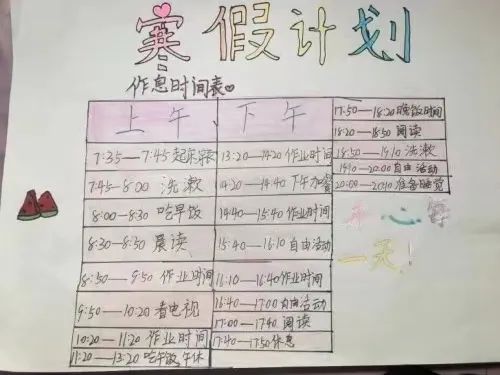 寒假计划
作息时间表
上午
7:35—7:45起床穿衣
7:45—8:00 洗漱
8:00—8:30 吃早饭
8:30—8:50 晨读
8:50—9:50 作业时间
9:50—10:20看电视
10:20—11:20 作业时间
11:20—13:20 吃午饭,午休
下午
13:20—14:20作业时间
14:20—14:40 下午加餐
14:40—15:40作业时间
15:40—16:10自由活动
16:10—16:40作业时间
16:40—17:00自由活动
17:00—17:40 阅读
17:40—17:50休息
17:50—18:20晚饭时间
18:20—18:50 阅读
18:50—19:10 洗漱
19:10—20:00自由活动
20:00—20:10准备睡觉
开心每
一天!